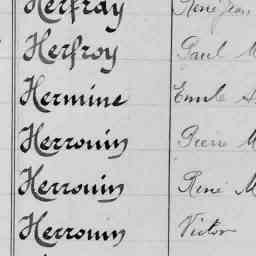 Herfray René Jean
Herfroy Paul M
Hermine Emile A
Herrouin Pierre M
Herrouin René M
Herrouin Victor